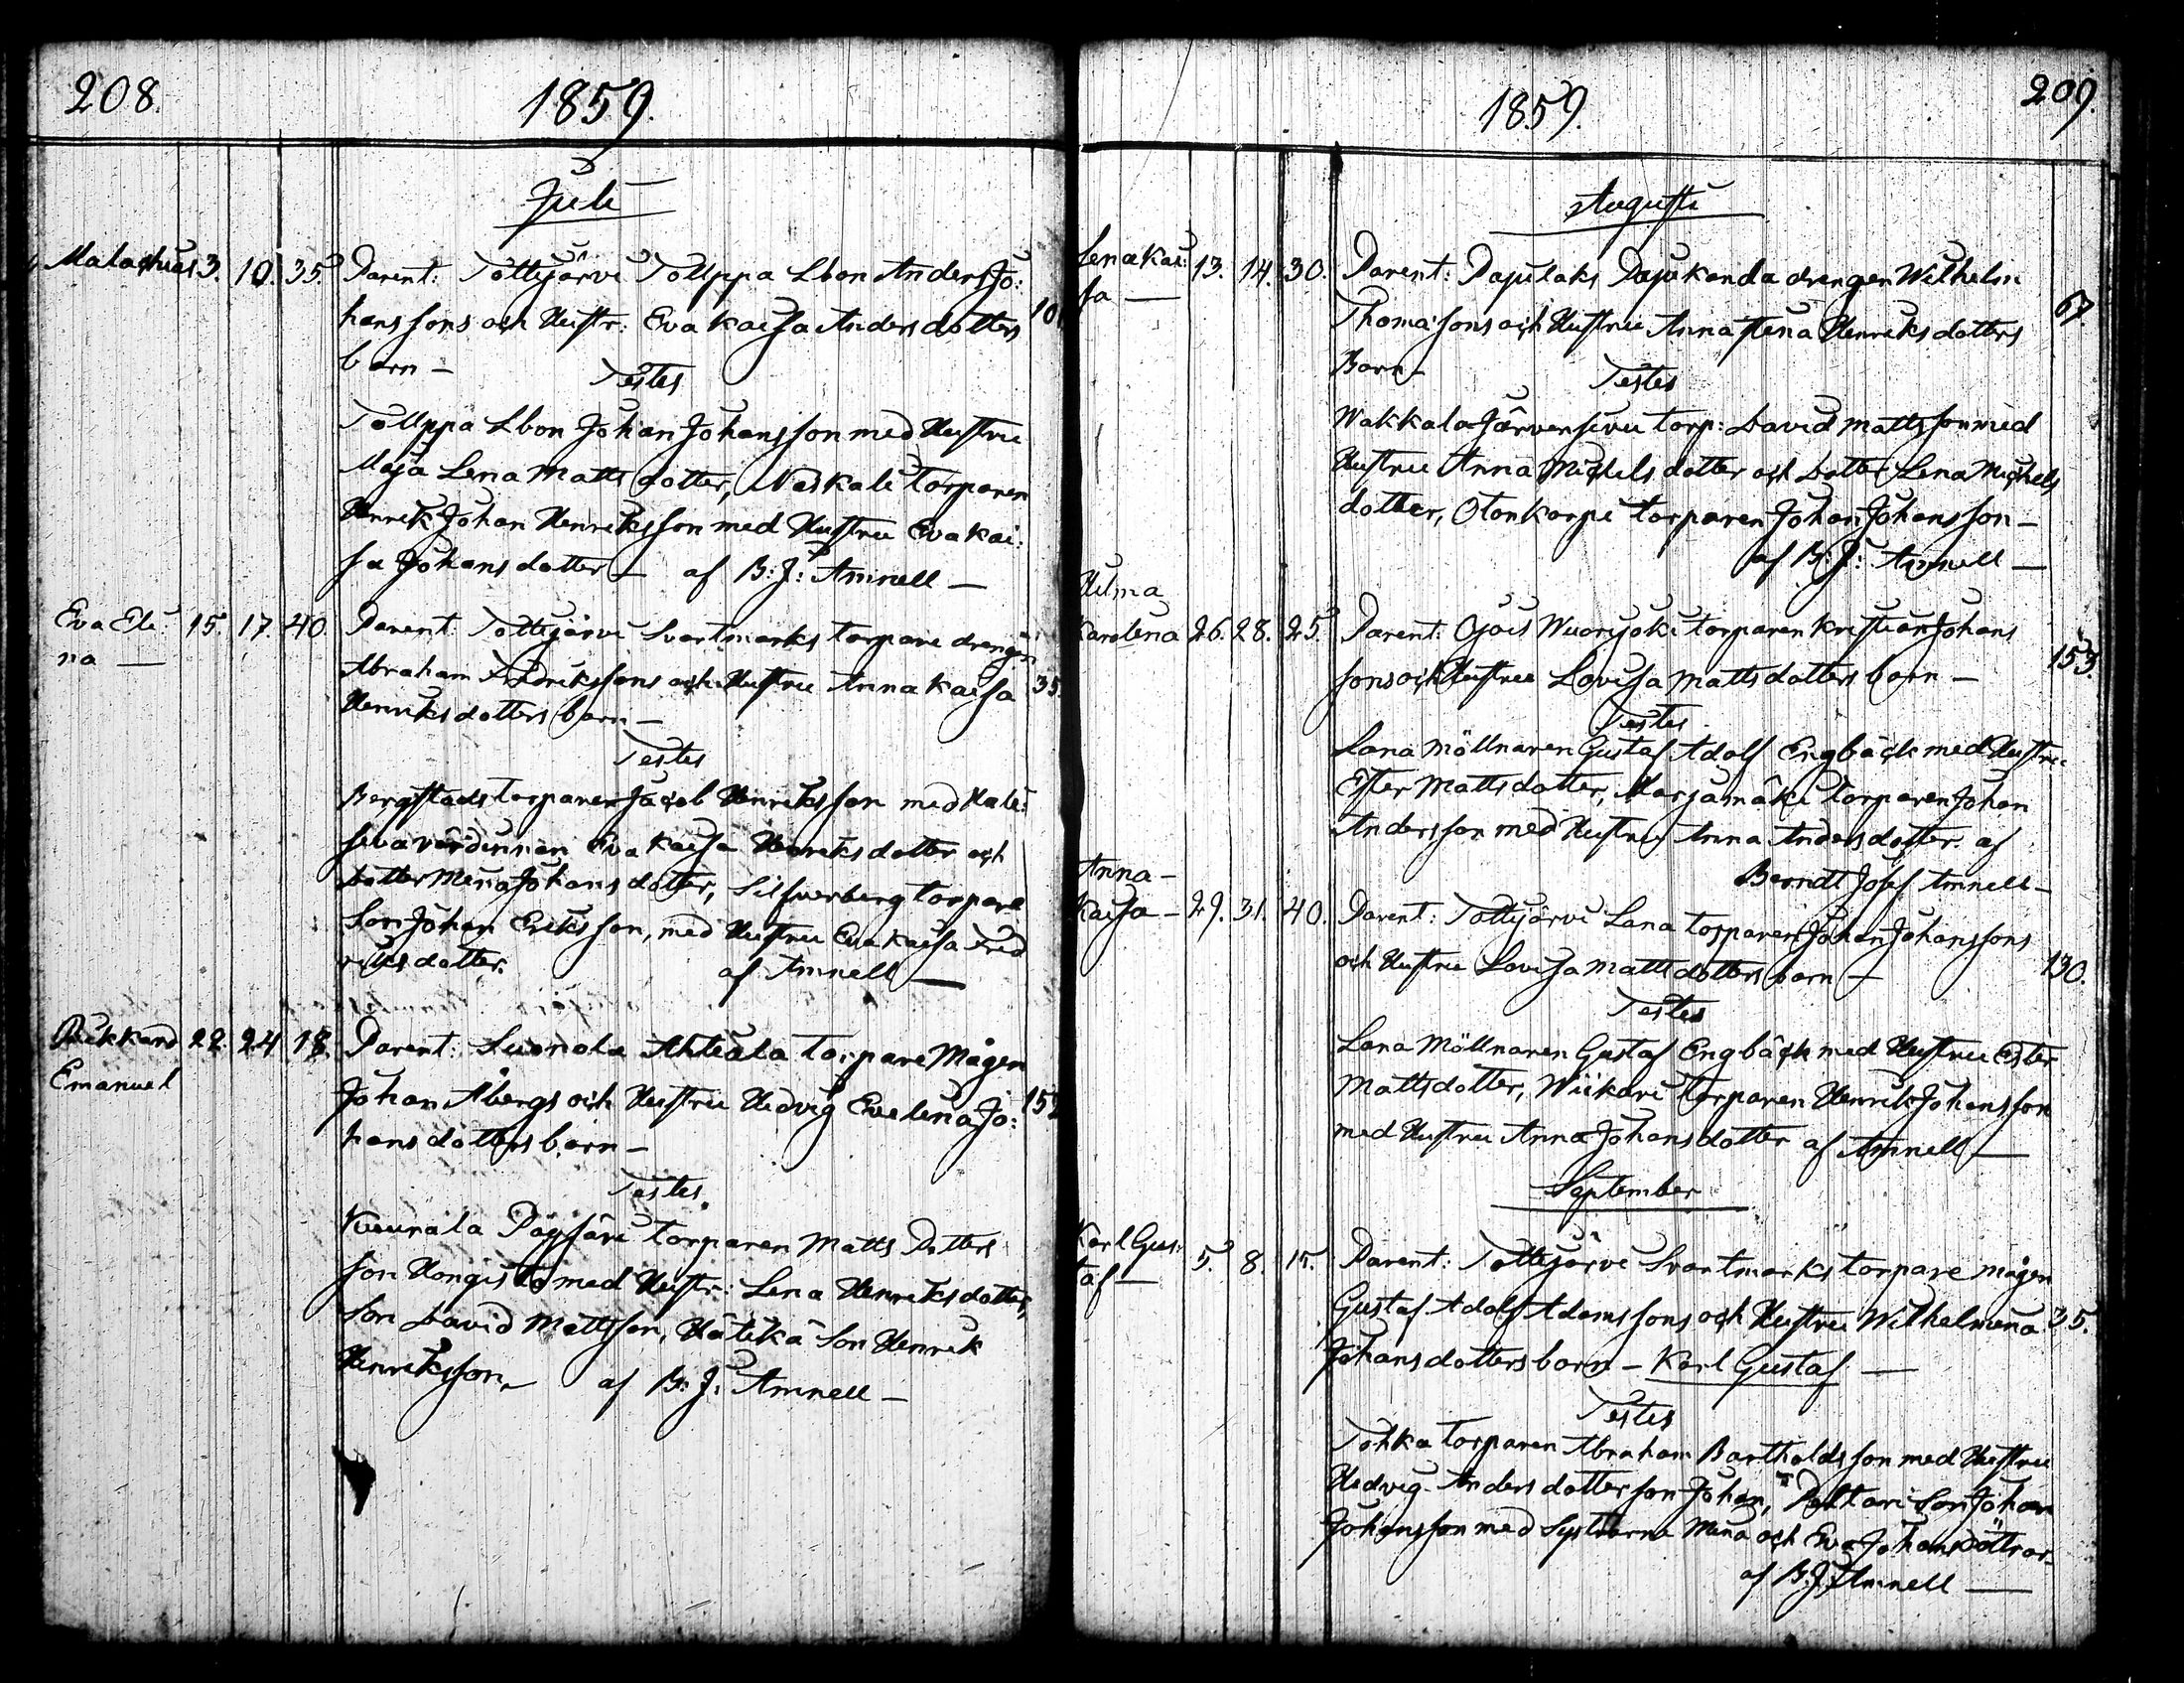 208.
1859.
Juli
Malachias 3. 10. 35. Parent: Tottijärvi Tolppa Lbon Anders Jo:
hanssons och Hustr: Eva Kaisa Andersdotters 10
barn —
Testes
Tolppa Lbon Johan Johansson med Hustru
Maja Lena Mattsdotter, Naskali torparen
Henrik Johan Henriksson med Hustru Eva Kai:
sa Johansdotter — af B: J: Amnell —
Eva Eli: 15. 17. 40. Parent: Tottijärvi Svartmarks torpare drengen
na — Abraham Fredrikssons och Hustru Anna Kaisa 35.
Henriksdotters barn —
Testes
Bergstads torparen Jacob Henriksson med
värdinnan Eva Kaisa Henriksdotter och
dotter Mina Johansdotter, Silfverberg torpare
Son Johan Eriksson, med Hustru Eva Kaisa Fred
riksdotter. af Amnell —
Rikkard 22. 24 18. Parent: Suonola Ahtiala torpare Mågen
Emanuel Johan Åbergs och Hustru Hedvig Evelina Jo: 152
hansdotters barn —
Testes.
Kuurala torparen Matts
son Hongisto med Hustr: Lena Henriksdotter,
Son David Mattsson, Hätikä Son Henrik
Henriksson, af B: J: Amnell —
209.
1859.
Augusti
Lena Kai: 13. 14. 30. Parent: Pajulaks Pajukanda drengen Wilhelm
sa — Thomassons och Hustru Anna Stina Henriksdotters 67.
Barn —
Testes
Wakkala Järvensivu torp: David Mattsson med
Hustru Anna Michelsdotter och dotter Lena Michels
dotter, Otonkorpi torparen Johan Johansson —
af B: J: Amnell —
Hilma
Karolina 26. 28. 25. Parent: Ojois Wuorijoki torparen Kristian Johans
sons och Hustru Lovisa Mattsdotters barn — 153.
Testes
Lana Möllnaren Gustaf Adolf Engbäck med Hustru
Ester Mattsdotter, Marjamäki torparen Johan
Andersson med Hustru Anna Andersdotter. af
Berndt Josef Amnell —
Anna —
Kaisa — 29. 31. 40. Parent: Tottijärvi Lana torparen Johan Johanssons
och Hustru Lovisa Mattsdotters barn — 130.
Testes
Lana Möllnaren Gustaf Engbäck med Hustru Ester
Mattsdotter, Wiikari torparen Henrik Johansson
med Hustru Anna Johansdotter af Amnell —
September
Karl Gus: 5. 8. 15. Parent: Tottijärvi Svartmarks torpare mågen
taf — Gustaf Adolf Adamssons och Hustru Wilhelmina 35.
Johansdotters barn — Karl Gustaf —
Testes
Tohka torparen Abraham Bartholdsson med Hustru
Hedvig Andersdotter son Johan, Paltari Son Johan
Johansson med Systrarne Mina och Eva Johansdöttrar.
af B: J: Amnell —